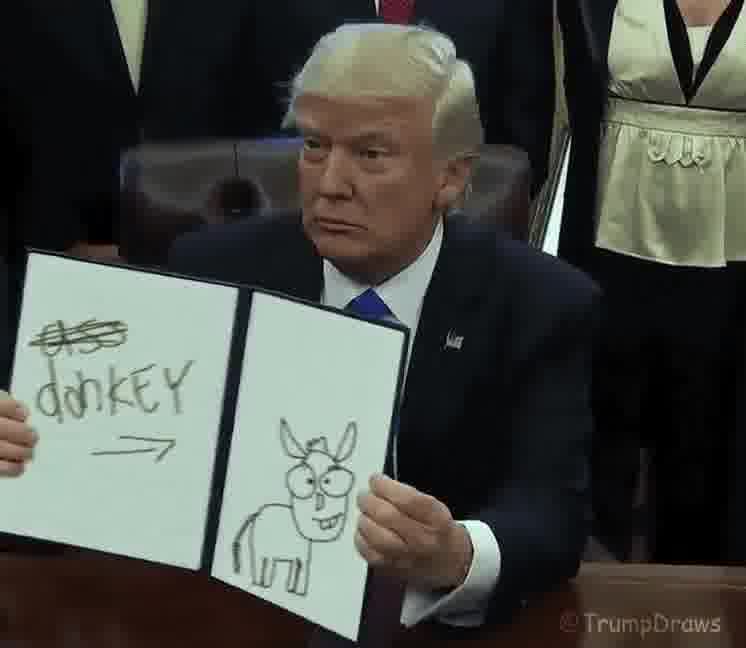 ass
donkEY
@TrumpDraws